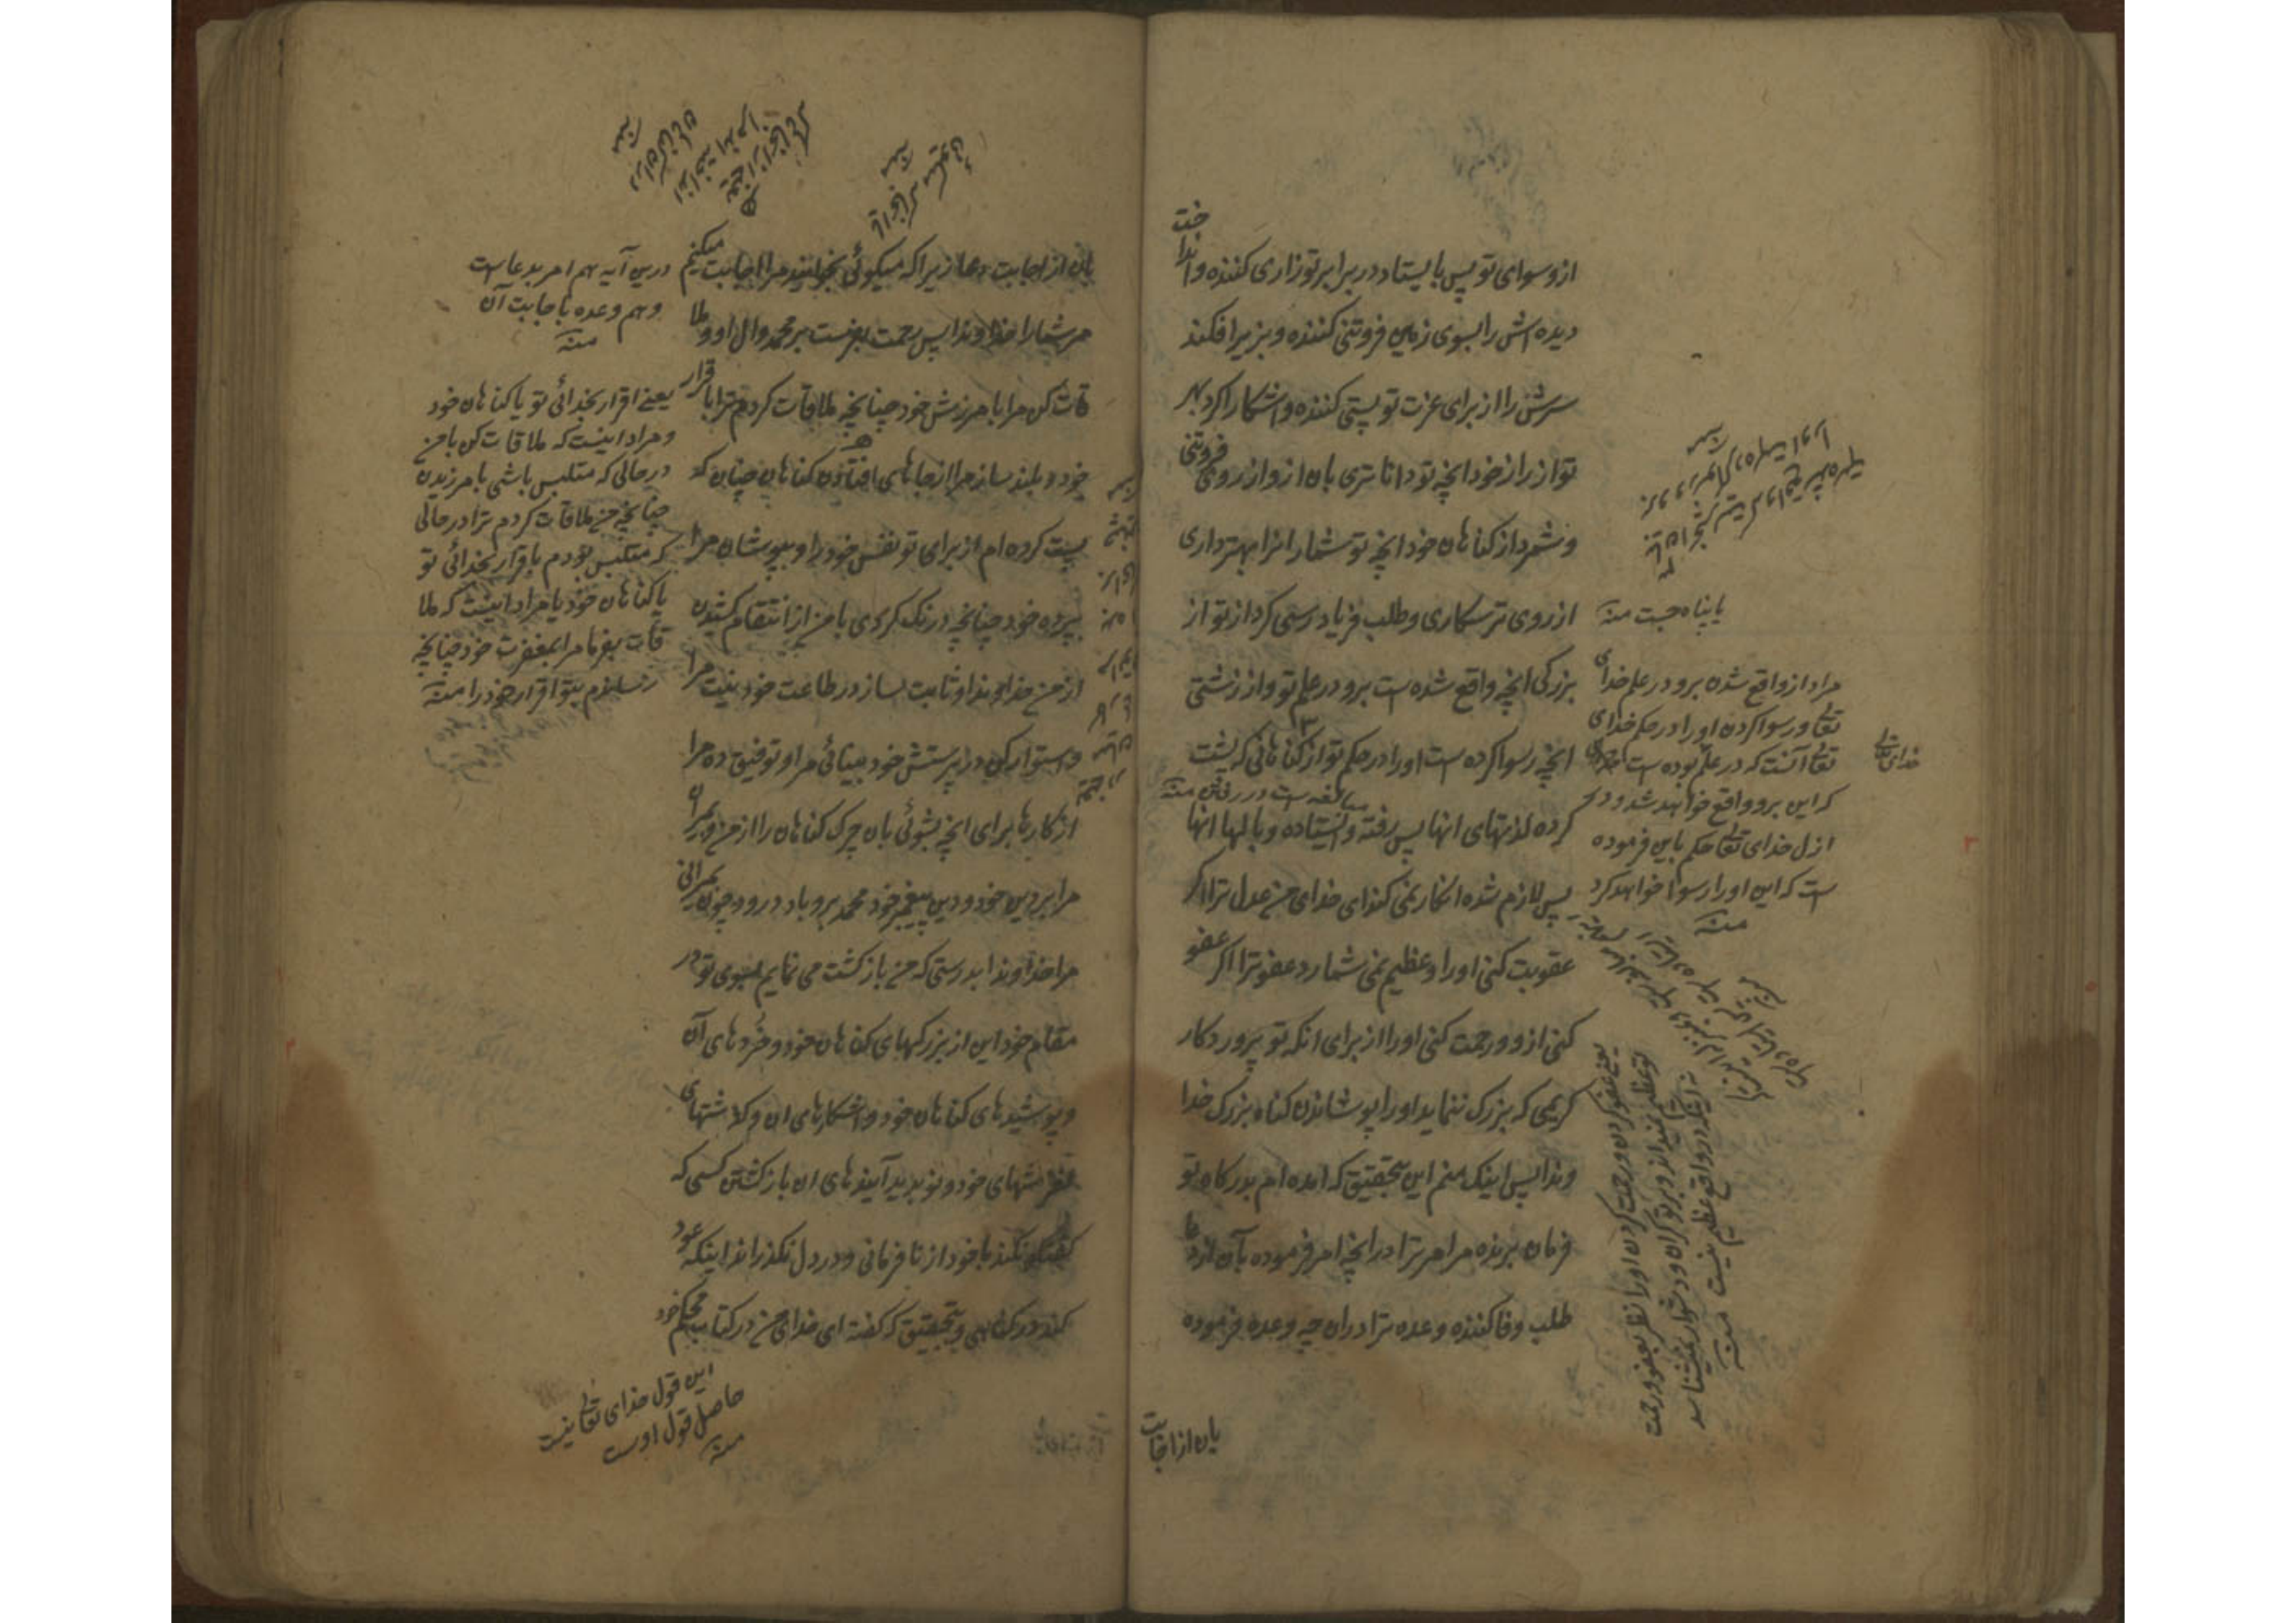 ازو سوای تو پس بایستاد در برابر تو زاری کننده و انداخت
دیده اش را بسوی زمین فروتنی کننده و بزیر افکند
سرش را از برای عزت تو پستی کننده و اشکارا کرد بر
تو از راز خود انچه تو داناتری بان ازو از روی فروتنی
و شمرد از کناهان خود انچه تو شمار انرا بهتر داری
از روی ترسکاری و طلب فریاد رسی کرد از تو از
بزرکی انچه واقع شده است برو در علم تو و از زشتی
انچه رسوا کرده است او را در حکم تو از کناهانی که پشت
کرده لذتهای انها پس رفته و ایستاده وبالها انها
پس لازم شده انکار نمی کند ای خدای من عدل ترا اکر
عقوبت کنی او را و عظیم نمی شمارد عفو ترا اکر عفو
کنی ازو و رحمت کنی او را از برای انکه تو پروردکار
کریمی که بزرک ننماید او را پوشاندن کناه بزرک خدا
وندا پس اینک منم این بتحقیق که امده ام بدرکاه تو
فرمان برنده مر امر ترا در انچه امر فرموده بآن از دعا
طلب وفا کننده وعده ترا دران چه وعده فرموده
بان از اجابت
یا پناه جست منه
مراد از واقع شدن برو در علم خدای
تعالی و رسوا کردن او را در حکم خدای
تعالی آنست که در علم بوده است
که این برو واقع خواهد شد و در
ازل خدای تعالی حکم باین فرموده
است که این او را رسوا خواهد کرد
منه
خدای تعالی
مبالغه است در رفتن منه
یعنی عفو کردن و رحمت کردن او را نظر بعفو و رحمت
تو عظیم نمیداند و بر تو کران و دشوار نمیشناسد
نه اینکه در واقع عظیم نیست منه
بان از اجابت دعا زیرا که میکوئی بخوانید مرا اجابت میکنیم
مر شما را خداوندا پس رحمت بفرست بر محمد و ال او و ملا
قات کن مرا بامرزش خود چنانچه ملاقات کردم ترا باقرار
خود و بلند ساز مرا از جاهای افتادن کناهان چنان که
پست کرده ام از برای تو نفس خود را و بپوشان مرا
بپرده خود چنانچه درنک کردی با من از انتقام کشیدن
از من خداوندا و ثابت بساز در طاعت خود نیت مرا
و استوار کن در پرستش خود بینائی مرا و توفیق ده مرا
از کارها برای انچه بشوئی بان چرک کناهان را از من و بمیران
مرا بر دین خود و دین پیغمبر خود محمد برو باد درود چون بمیرانی
مرا خداوندا بدرستی که من بازکشت می نمایم بسوی تو در
مقام خود این از بزرکیهای کناهان خود و خردهای آن
و پوشیدهای کناهان خود و اشکارهای ان و کذشتهای
لغزشهای خود و نو پدید آیندهای ان بازکشتن کسی که
کفتکو نکند با خود از نافرمانی و در دل نکذراند اینکه عود
کند در کناهی و بتحقیق که کفته ای خدای من در کتاب محکم خود
درین آیه هم امر بدعاست
و هم وعده باجابت آن
منه
یعنی اقرار بخدائی تو یا کناهان خود
و مراد اینست که ملاقات کن با من
در حالی که متلبس باشی بامرزیدن
چنانچه من ملاقات کردم ترا در حالی
که متلبس بودم باقرار بخدائی تو
یا کناهان خود یا مراد اینست که ملا
قات بفرما مرا بمغفرت خود چنانچه
رسانیدم بتو اقرار خود را منه
این قول خدای تعالی نیست
حاصل قول اوست
منه